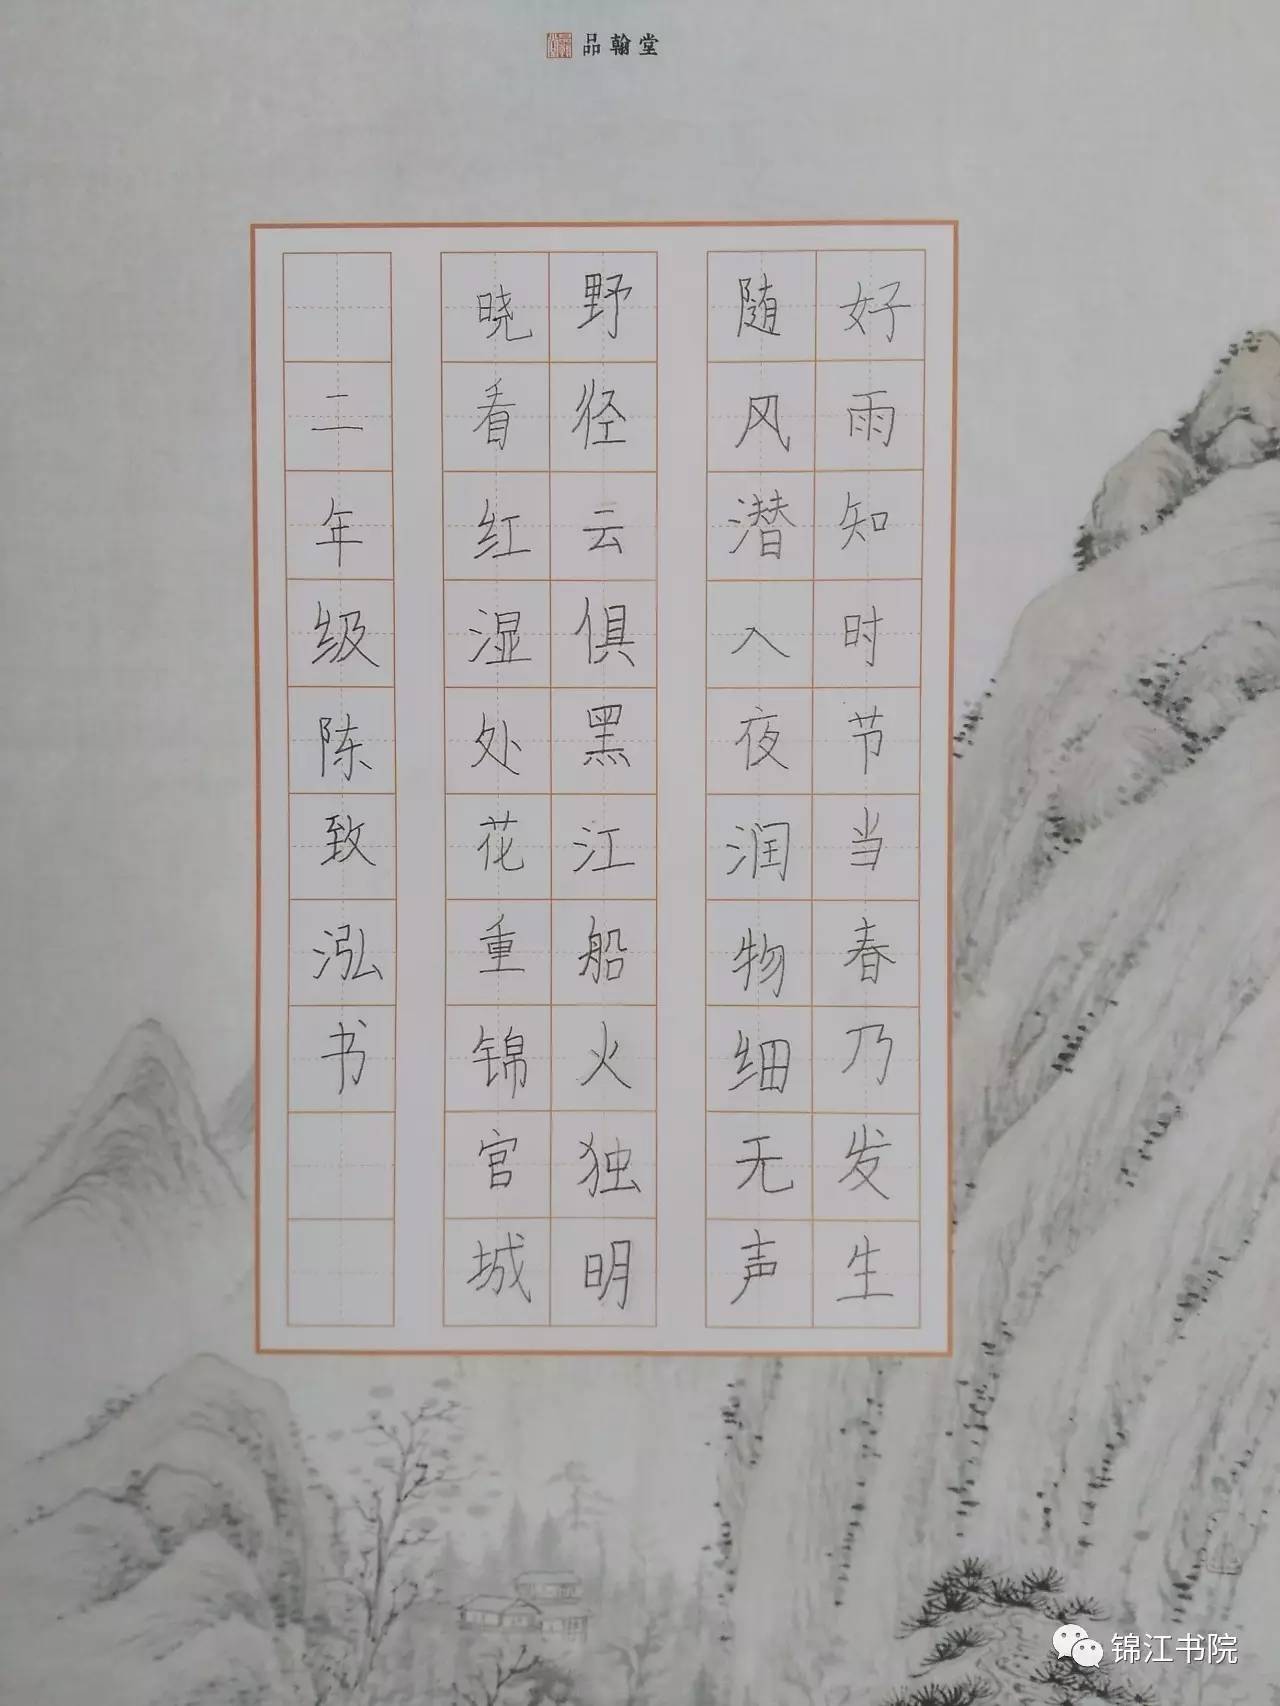 品翰堂
好雨知时节当春乃发生
随风潜入夜润物细无声
野径云俱黑江船火独明
晓看红湿处花重锦官城
二年级陈致泓书
锦江书院